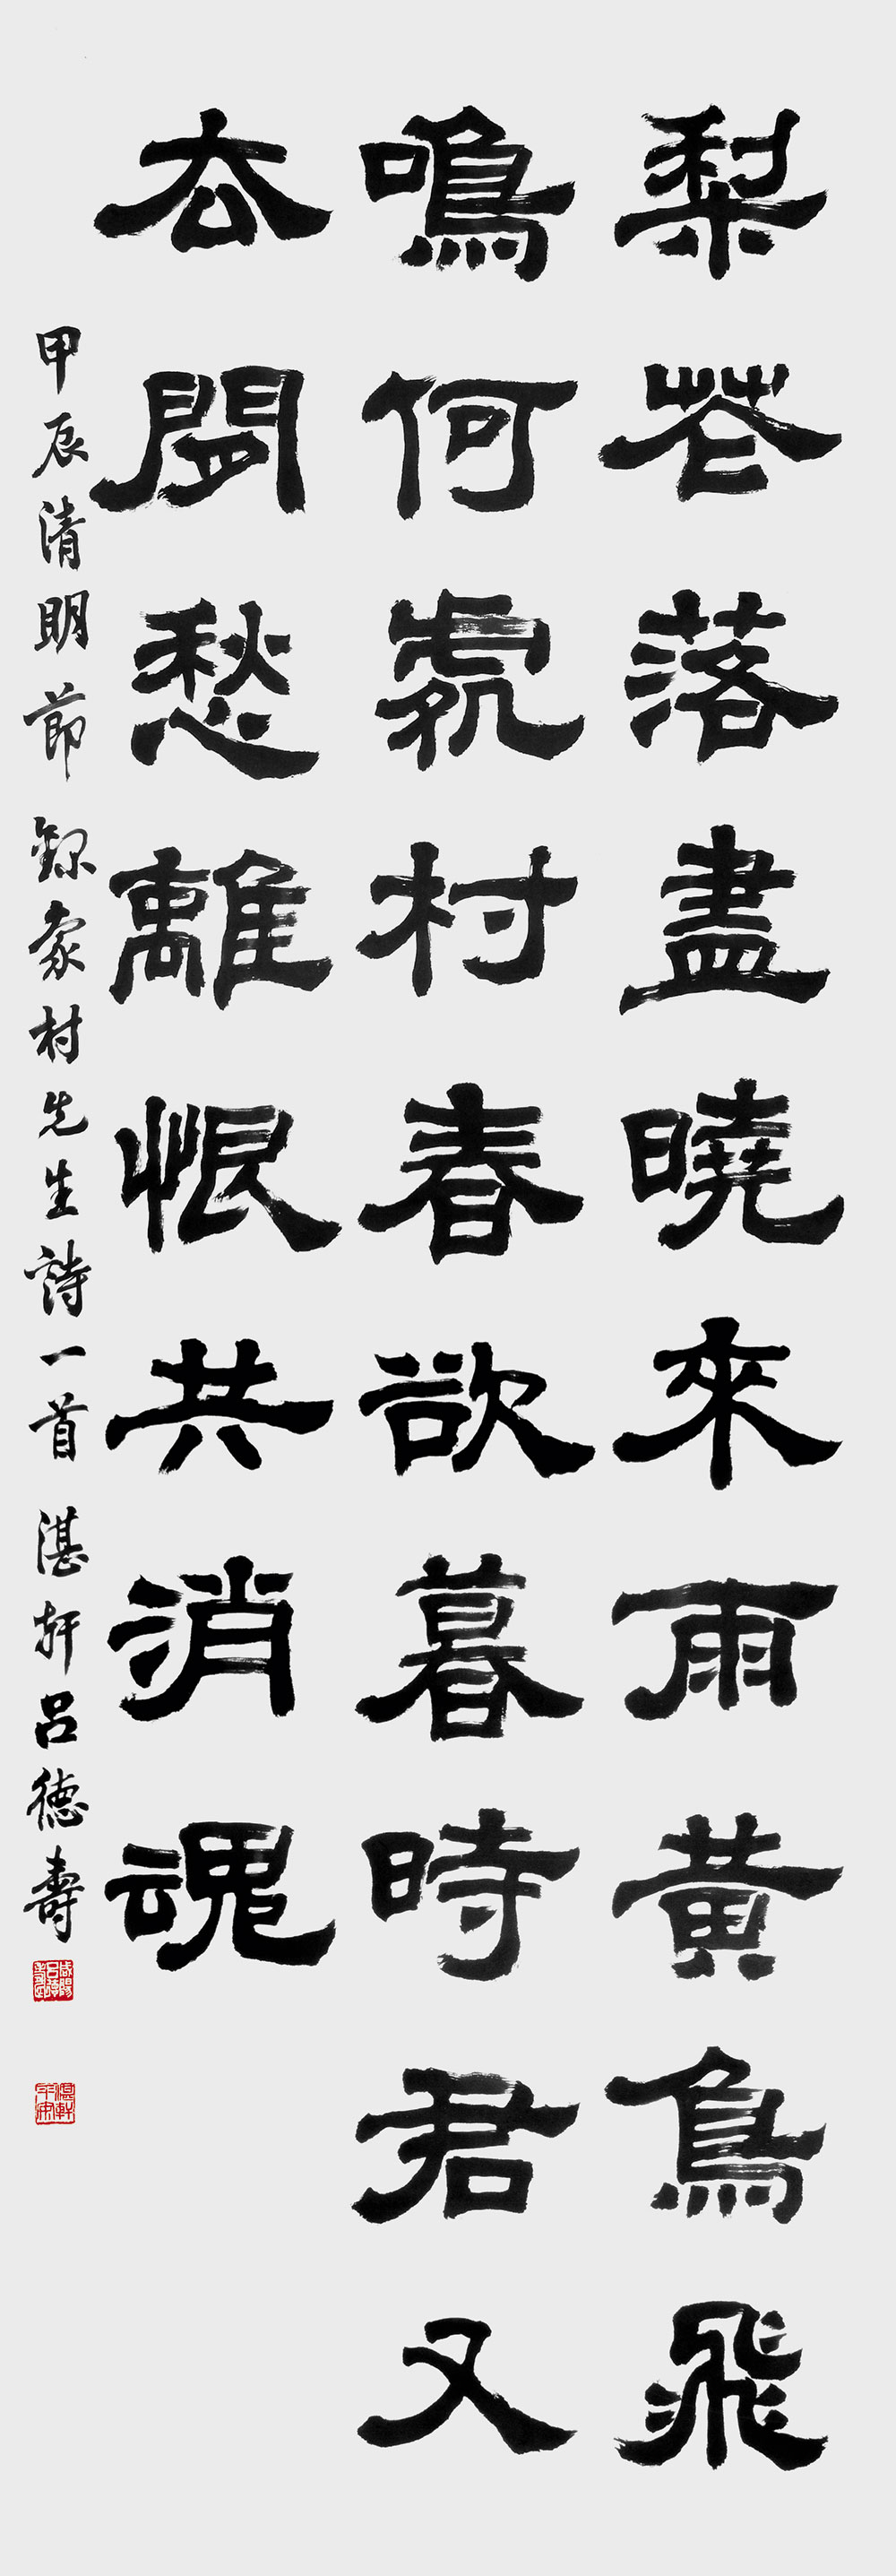 梨花落盡曉來雨黃鳥飛
鳴何處村春欲暮時君又
去閒愁離恨共消魂
甲辰清明節錄象村先生詩一首 湛軒呂德壽